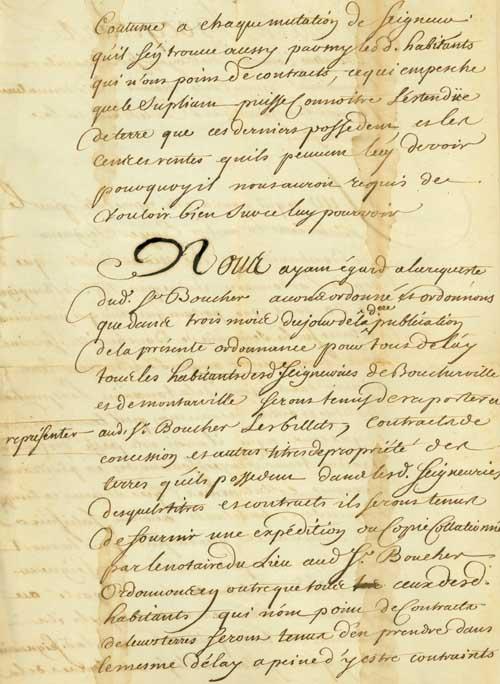 Coutume a chaque mutation de Seigneur.
qu'il s'ey trouve aussy parmy lesd. habitants
qui n'ons poins de contracts, ce qui empesche
que le Supliam puisse Connoitre L'estendüe
de terre que ces derniers possedem et les
cens et rentes qu'ils peuvem luy devoir
pourquoy il nous auroit requis de
vouloir bien sur ce luy pourvoir
Nous ayam égard a la requeste
dud. Sr. Boucher avons ordonné et ordonnons
que dans trois mois du jour de la dere publication
de la présente ordonnance pour tous delay
tous les habitants desd. Seigneuries de Boucherville
et de montarville serons tenus de raporter a
représenter
aud. Sr. Boucher Les billets, contracts de
concession et autres titres de propriété des
terres qu'ils possedem dans lesd. Seigneuries
desquels titres et contracts ils serons tenus
de fournir une expédition ou Copie Collationnée
par le notaire du Lieu aud. Sr. Boucher
Ordonnons en outre que tous ceux desd.
habitants qui n'ons poins de Contracts
de leurs terres serons tenus d'en prendre dans
le mesme délay a peine d'y estre contraints